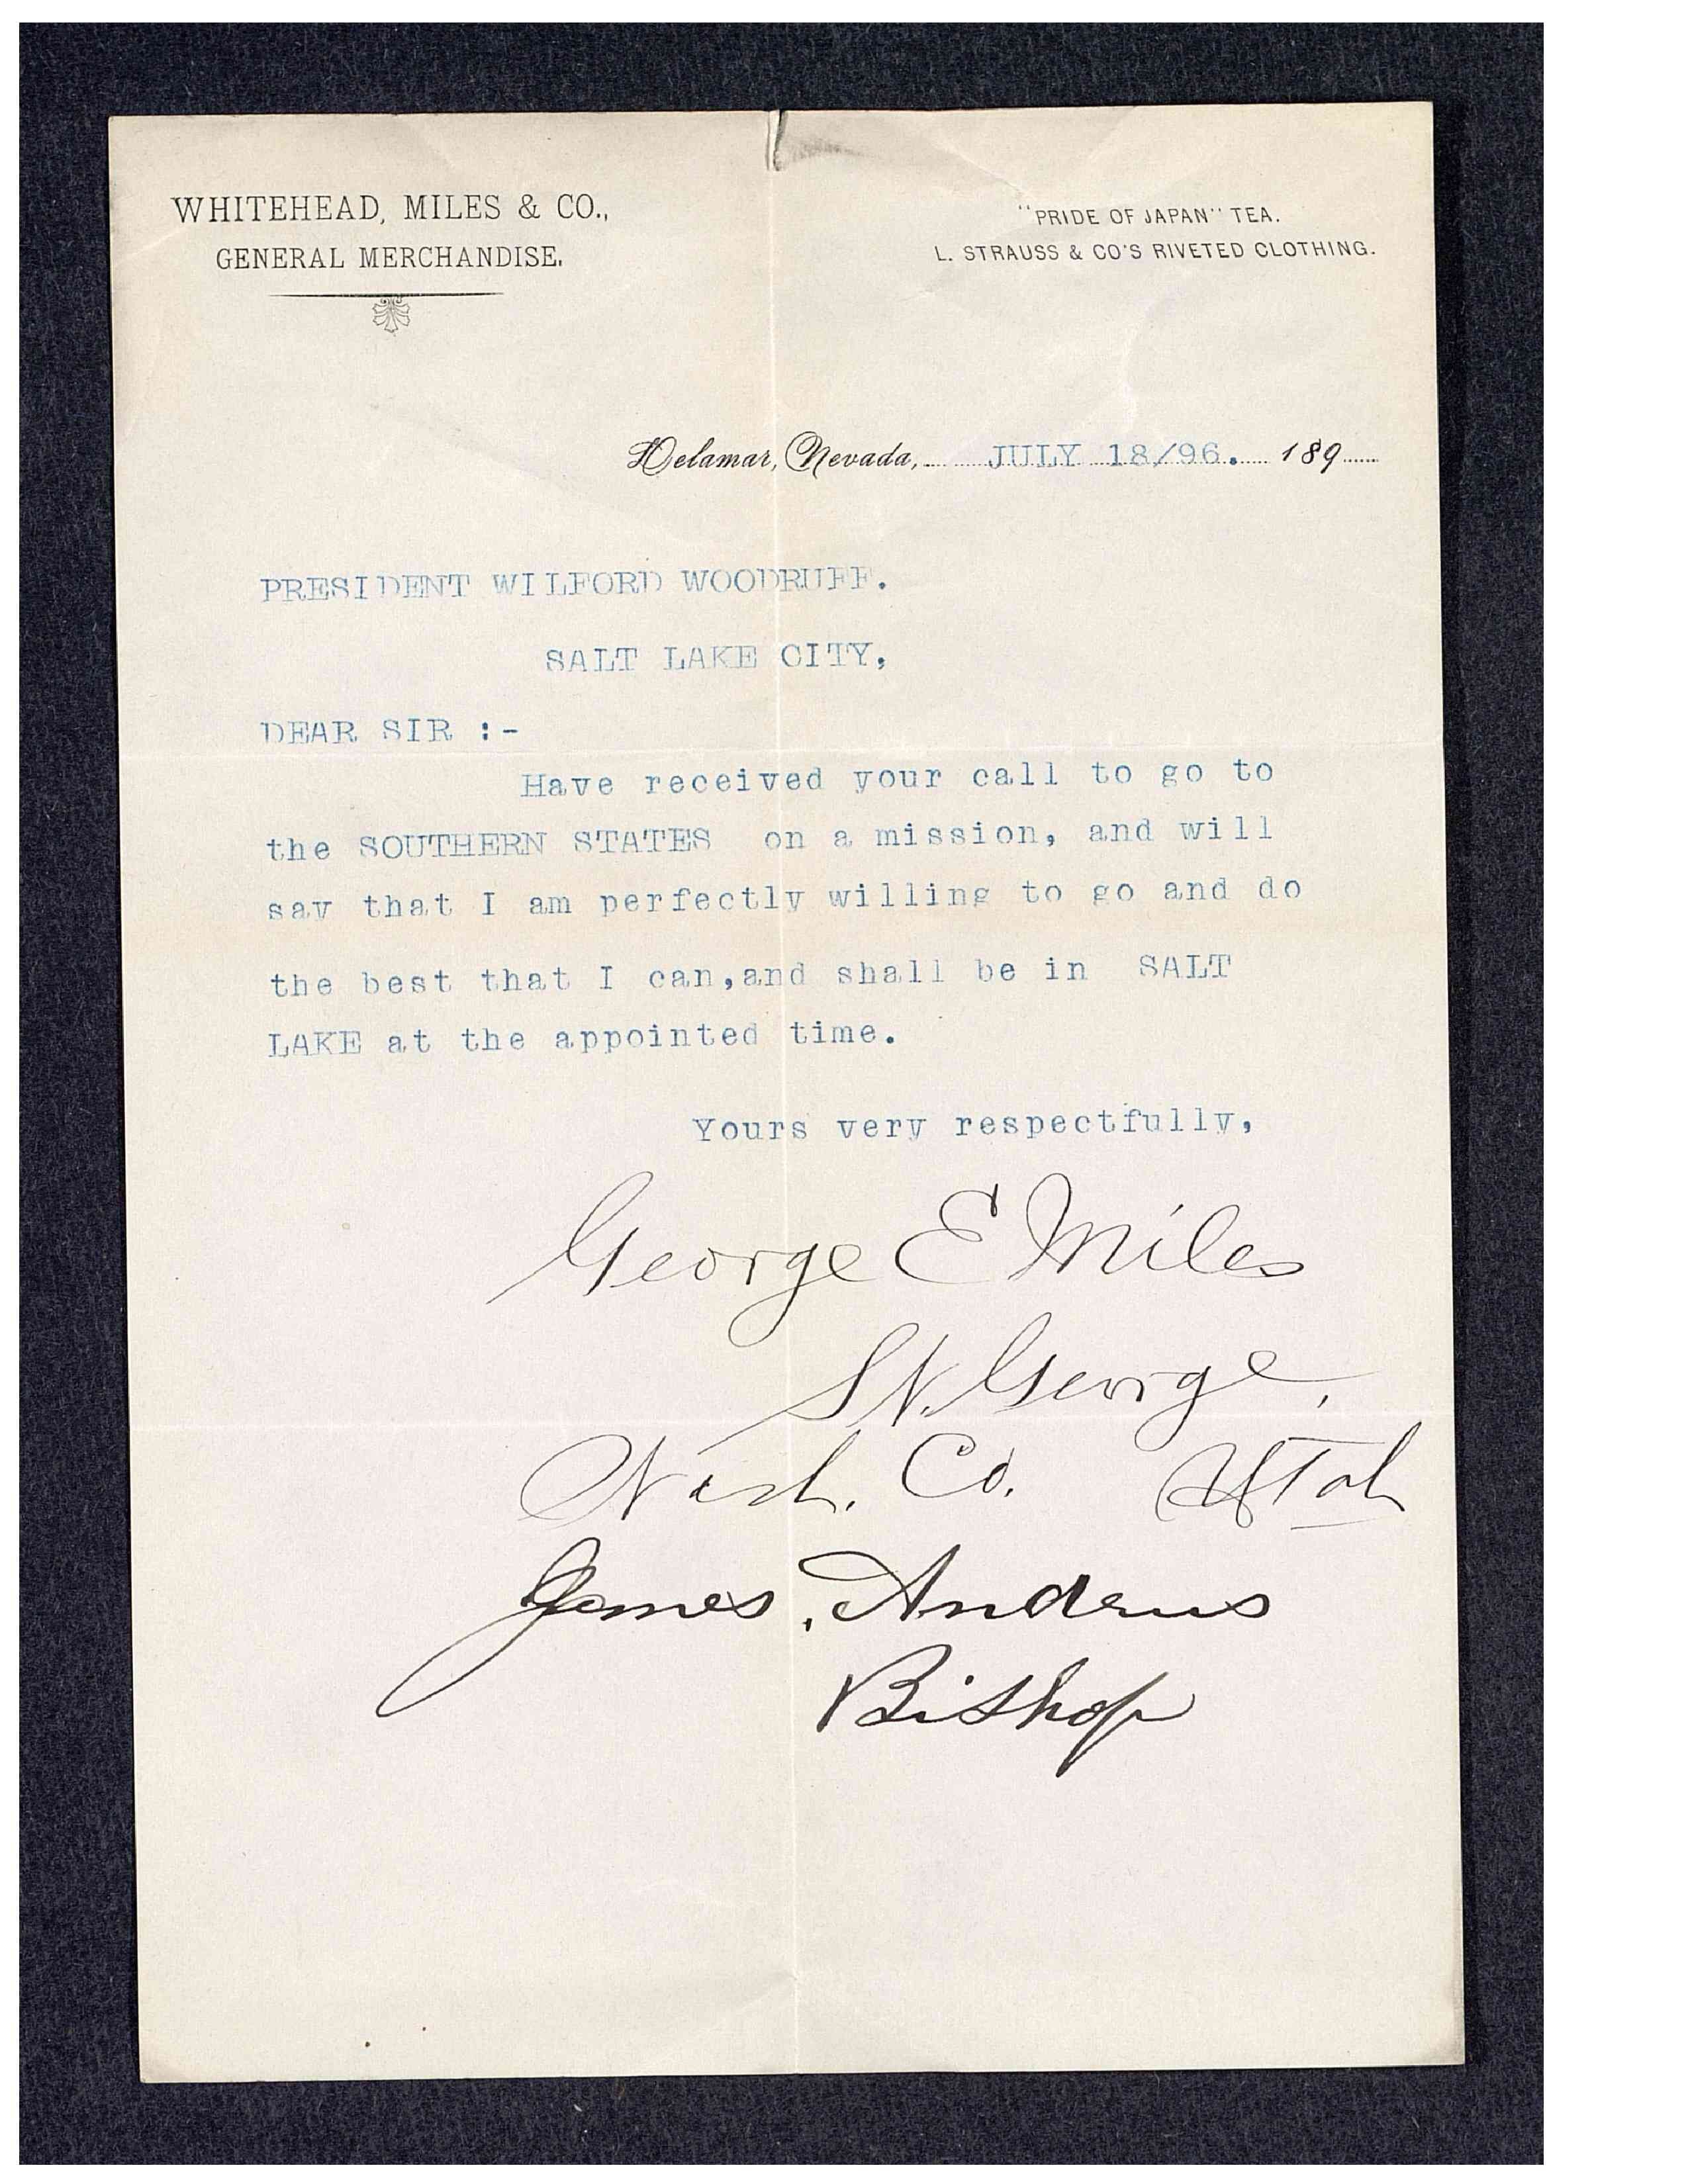 WHITEHEAD, MILES & CO.,
GENERAL MERCHANDISE.
"PRIDE OF JAPAN" TEA.
L. STRAUSS & CO'S RIVETED CLOTHING.
Delamar, Nevada, JULY 18/96. 189
PRESIDENT WILFORD WOODRUFF.
SALT LAKE CITY,
DEAR SIR :-
Have received your call to go to
the SOUTHERN STATES on a mission, and will
say that I am perfectly willing to go and do
the best that I can,and shall be in SALT
LAKE at the appointed time.
Yours very respectfully,
George E Miles
St. George,
Wash. Co. Utah
James. Andrus
Bishop